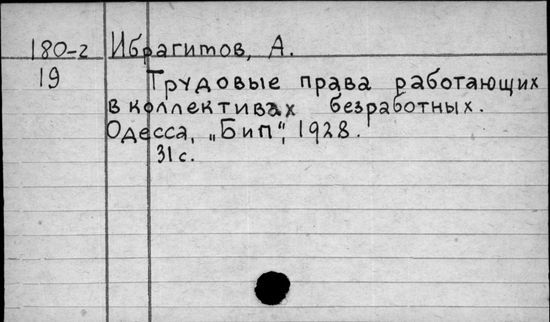 180-г Ибрагитов, А.
19 Трудовые права работающих
в коллективах безработных.
Одесса, „Бип", 1928.
31 с.